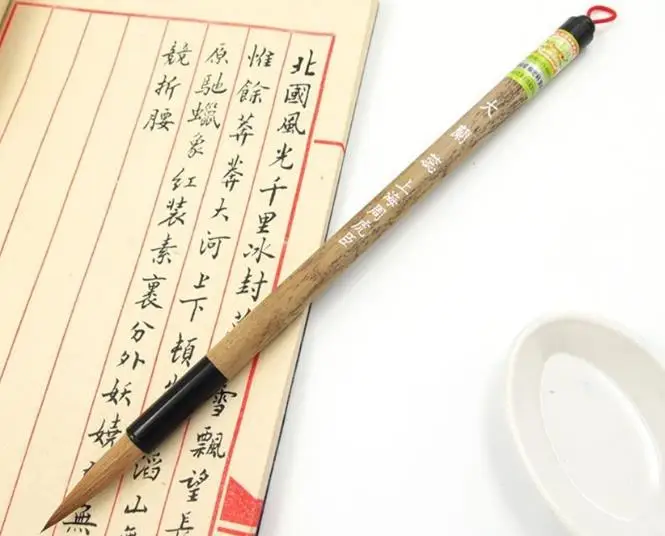 北國風光千里冰封
雪飄望長
惟餘莽莽大河上下頓
滔山
原馳蠟象紅裝素裹分外妖嬈
無
競折腰
大蘭蕊 上海周虎臣